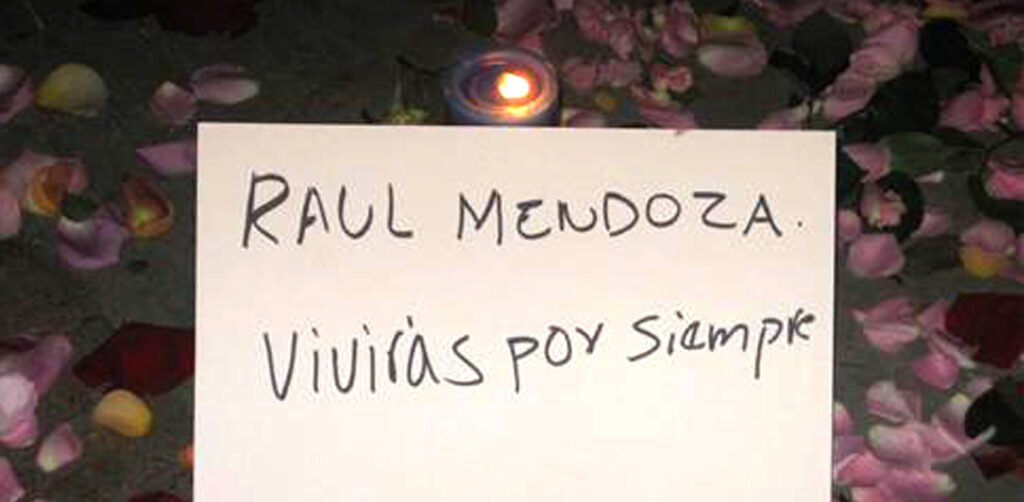 RAUL MENDOZA.
Vivirás por siempre